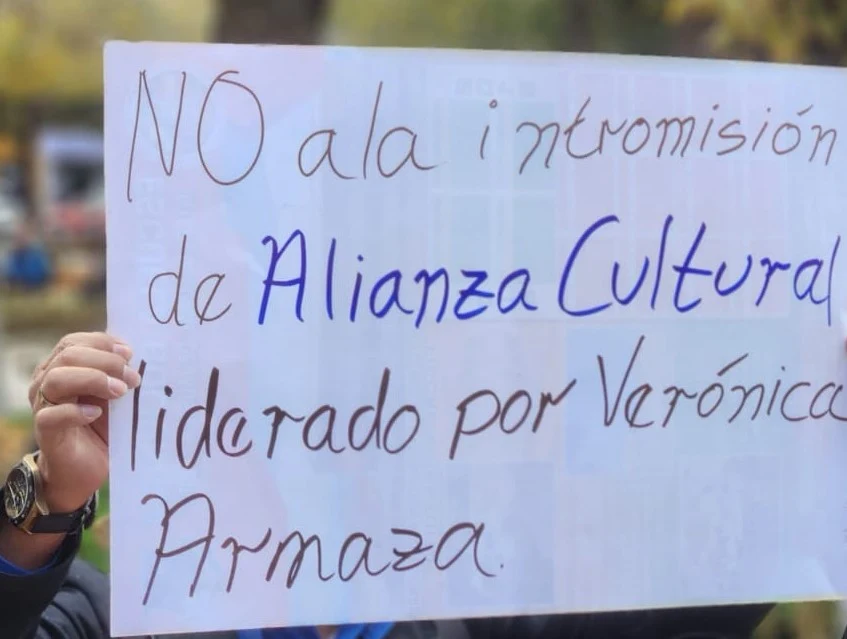 NO a la intromisión
de Alianza Cultural
liderado por Verónica
Armaza.